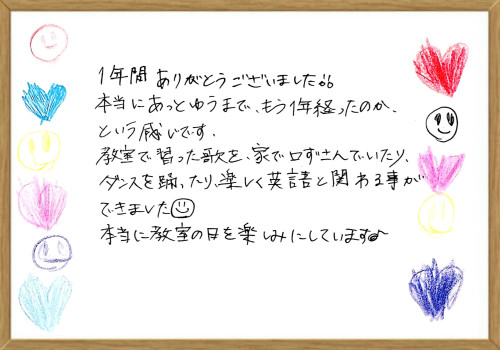 1年間ありがとうございました!!
本当にあっとゆうまで、もう1年経ったのか、
という感じです。
教室で習った歌を、家で口ずさんでいたり、
ダンスを踊ったり、楽しく英語と関わる事が
できました
本当に教室の日を楽しみにしています♪